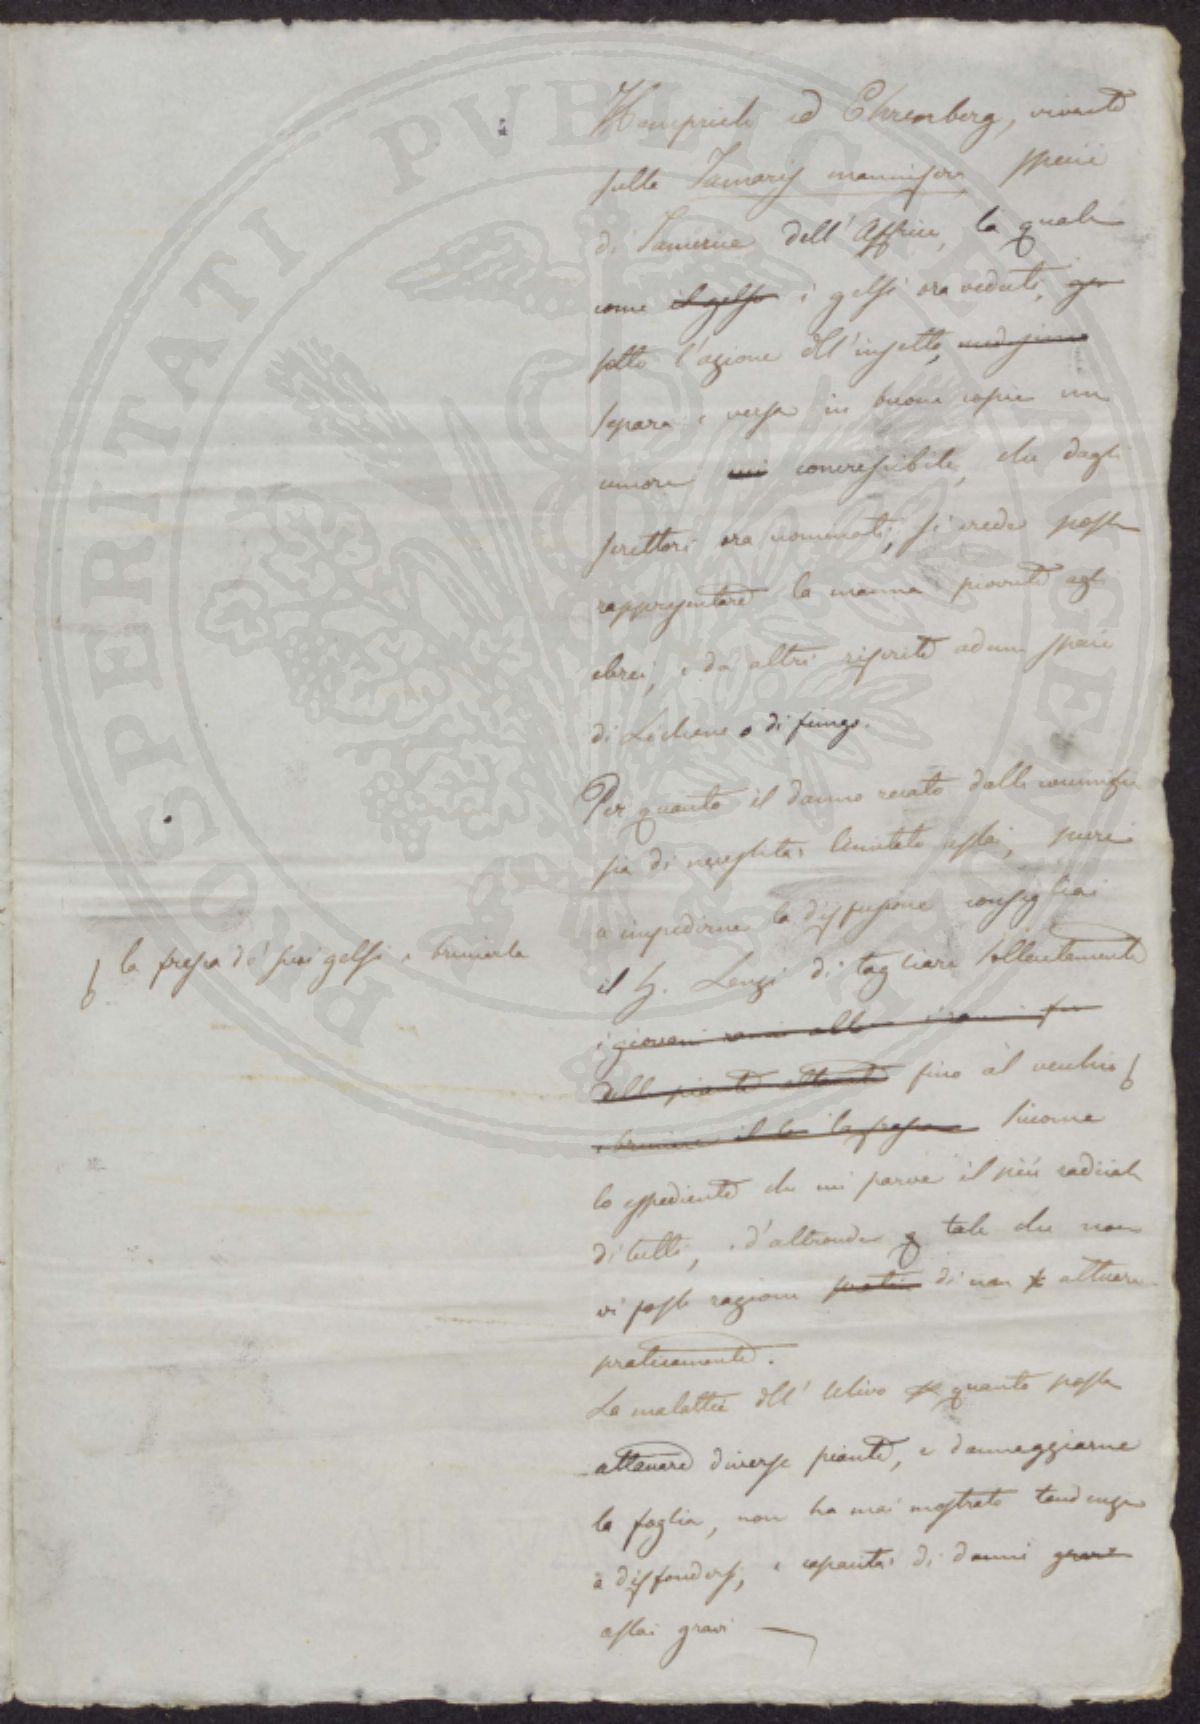 PROSPERITATI PVBLICAE AVGENDAE
Hemprich ed Ehrenberg, vivente
sulla Tamarix mannifera, specie
di Tamerice dell'Affrica, la quale
come il gelso i gelsi ora veduti,
sotto l'azione dell'insetto, medesimo
separa e versa in buona copia un
umore concrescibile, che dagli
scrittori ora nominati, si crede possa
rappresentare la manna piovuta agli
ebrei, e da altri riferita ad una specie
di Lichene o di fungo.
Per quanto il danno recato dalla cocciniglia
sia di necessità limitato assai, pure
a impedirne la diffusione consigliai
il Sig. Lenzi di tagliare sollecitamente
i giovani rami
delle piante attaccate fino al vecchio
la frasca de' suoi gelsi e bruciarla
e bruciare la frasca siccome
lo espediente che mi parve il più radicale
di tutti, e d'altronde tale che non
vi fosse ragione di non attuare
praticamente.
La malattia dell'Ulivo quanto possa
attaccare diverse piante, e danneggiarne
la foglia, non ha mai mostrato tendenza
a diffondersi, e capacità di danni gravi
assai gravi